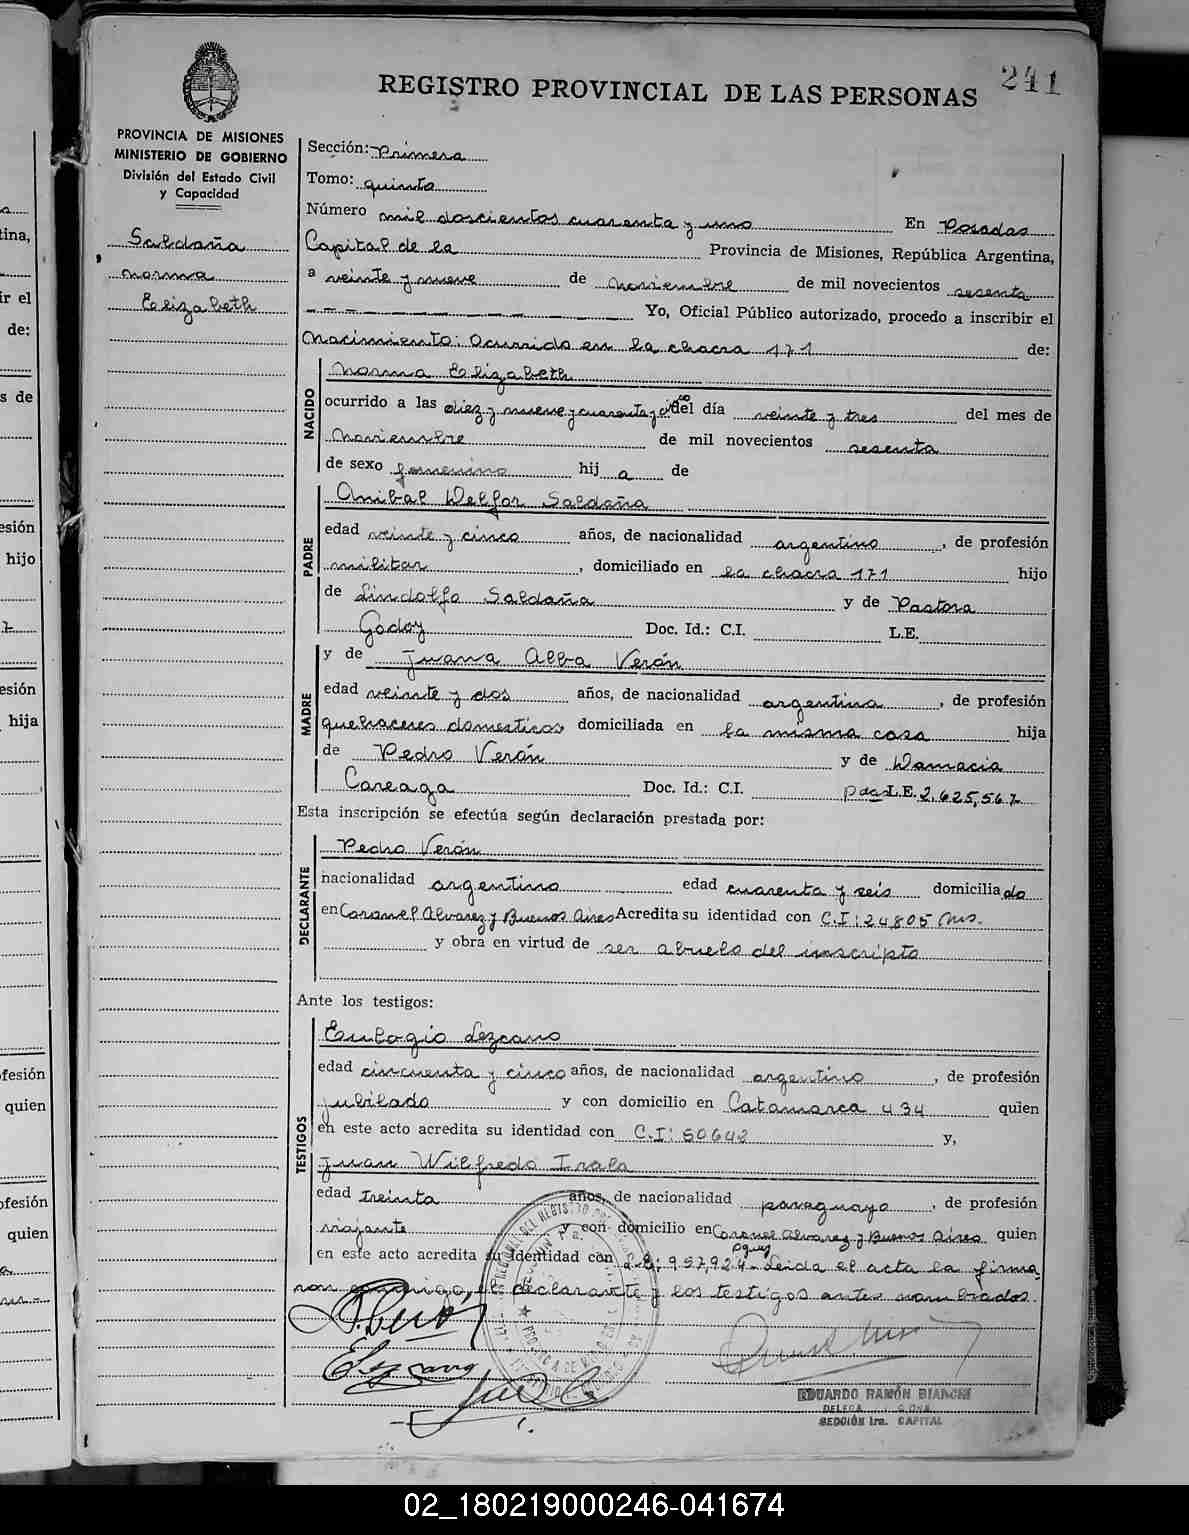 241
REGISTRO PROVINCIAL DE LAS PERSONAS
PROVINCIA DE MISIONES
MINISTERIO DE GOBIERNO
División del Estado Civil
y Capacidad
Saldaña
Norma
Elizabeth
Sección: Primera
Tomo: quinto
Número mil doscientos cuarenta y uno En Posadas
Capital de la Provincia de Misiones, República Argentina,
a veinte y nueve de noviembre de mil novecientos sesenta
Yo, Oficial Público autorizado, procedo a inscribir el
Nacimiento: Ocurrido en la chacra 171 de:
NACIDO
Norma Elizabeth
ocurrido a las diez y nueve y cuarenta y cinco del día veinte y tres del mes de
Noviembre de mil novecientos sesenta
de sexo femenino hij a de
PADRE
Anibal Welfor Saldaña
edad veinte y cinco años, de nacionalidad argentino, de profesión
militar, domiciliado en la chacra 171 hijo
de Lindolfo Saldaña y de Pastora
Godoy Doc. Id.: C.I. L.E.
MADRE
y de Juana Alba Verón
edad veinte y dos años, de nacionalidad argentina, de profesión
quehaceres domesticos domiciliada en la misma casa hija
de Pedro Verón y de Damacia
Careaga Doc. Id.: C.I. L.E. 2.625,567
Esta inscripción se efectúa según declaración prestada por:
DECLARANTE
Pedro Verón
nacionalidad argentino edad cuarenta y seis domiciliado
en Coronel Alvarez y Buenos Aires Acredita su identidad con C.I: 24805 Mns.
y obra en virtud de ser abuelo del inscripto
Ante los testigos:
TESTIGOS
Eulogio Lezcano
edad cincuenta y cinco años, de nacionalidad argentino, de profesión
jubilado y con domicilio en Catamarca 434 quien
en este acto acredita su identidad con C.I: 50642 y,
Juan Wilfredo Irala
edad treinta años, de nacionalidad paraguayo, de profesión
viajante y con domicilio en Coronel Alvarez y Buenos Aires quien
en este acto acredita su identidad con 957,924 - Leida el acta la firma
ron conmigo, el declarante y los testigos antes nombrados.
P. Verón
E Lezcano
EDUARDO RAMÓN BIANCHI
SECCIÓN 1ra. CAPITAL
02_180219000246-041674